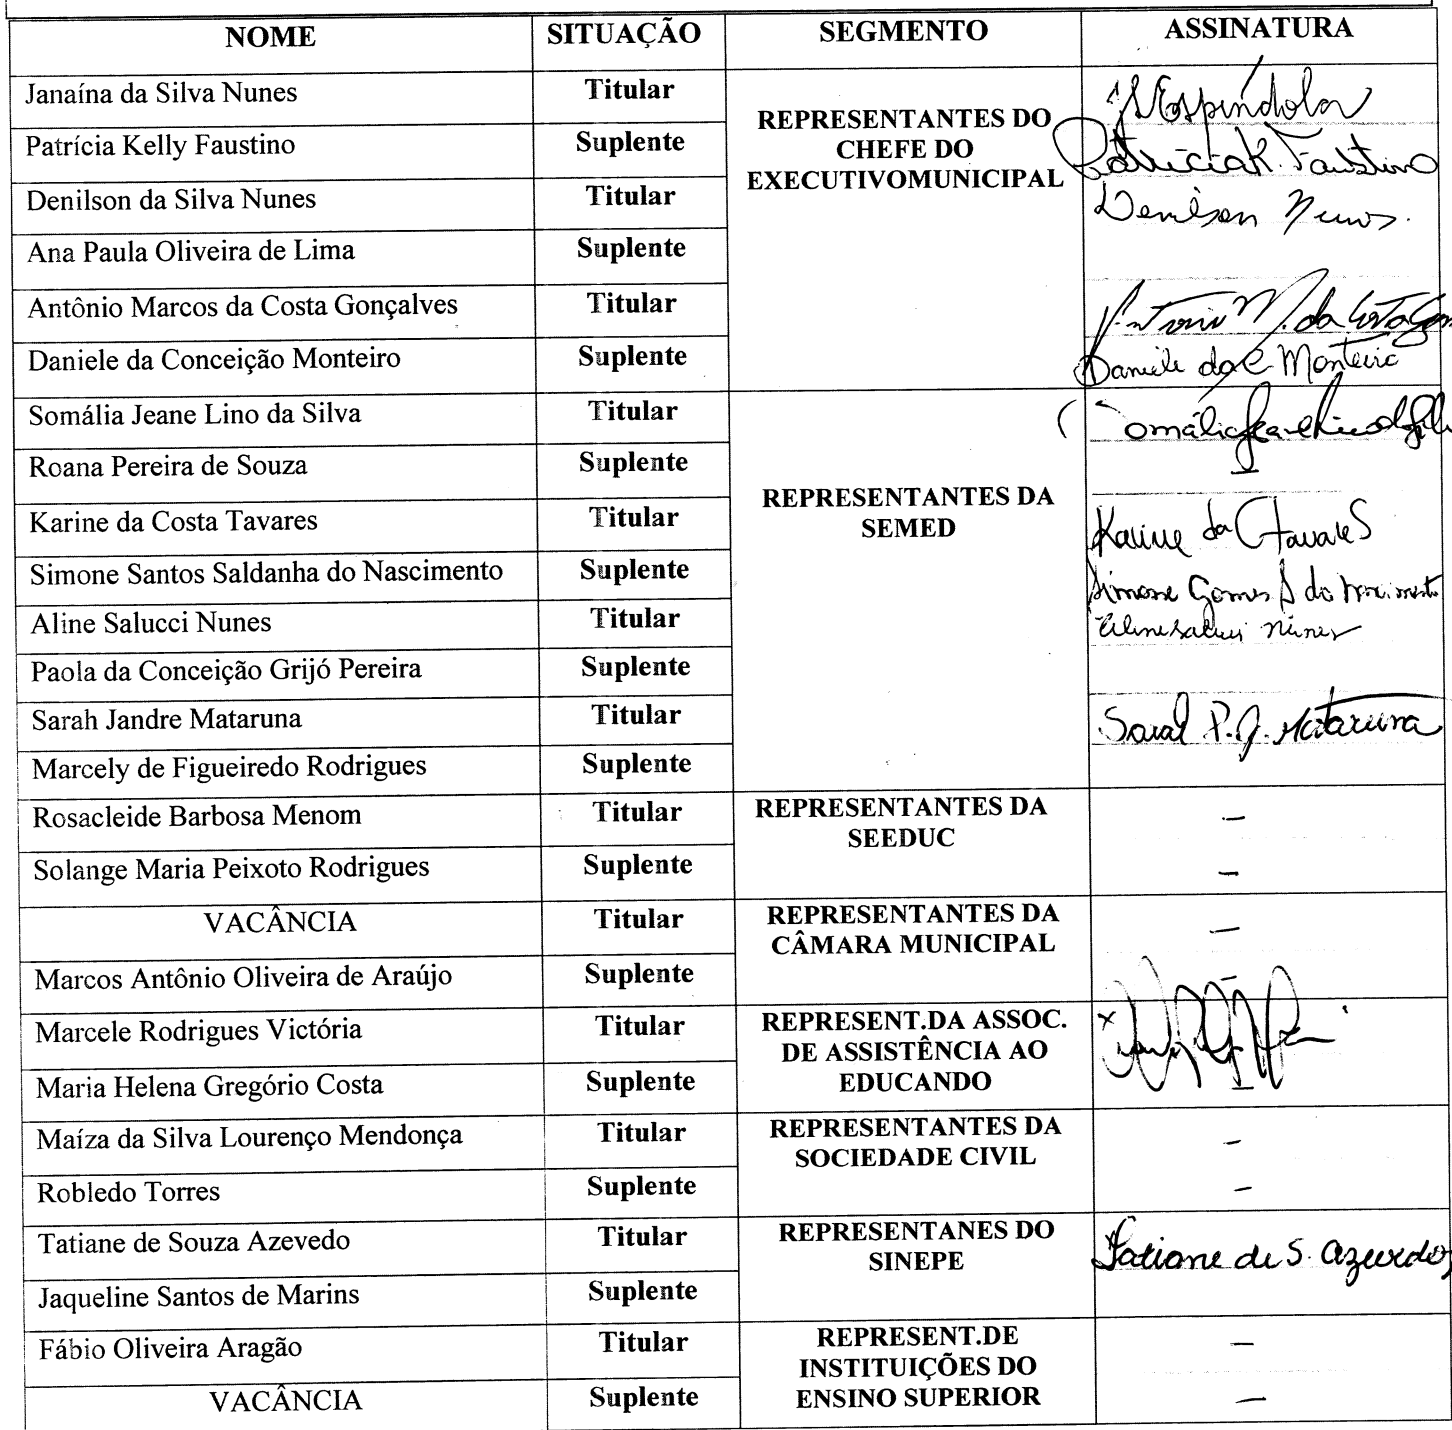 NOME SITUAÇÃO SEGMENTO ASSINATURA
Janaína da Silva Nunes Titular
REPRESENTANTES DO
CHEFE DO
EXECUTIVOMUNICIPAL
Espíndola
Patrícia Kelly Faustino Suplente Patrícia K. Faustino
Denilson da Silva Nunes Titular Denilson Nunes.
Ana Paula Oliveira de Lima Suplente
Antônio Marcos da Costa Gonçalves Titular Antonio M. da Costa Gon
Daniele da Conceição Monteiro Suplente Daniele da C. Monteiro
Somália Jeane Lino da Silva Titular
REPRESENTANTES DA
SEMED
Somália Jeane Lino da Silv
Roana Pereira de Souza Suplente –
Karine da Costa Tavares Titular Karine da C Tavares
Simone Santos Saldanha do Nascimento Suplente Simone Gomes S do Nascimento
Aline Salucci Nunes Titular Aline Salucci Nunes
Paola da Conceição Grijó Pereira Suplente
Sarah Jandre Mataruna Titular Sarah P. J. Mataruna
Marcely de Figueiredo Rodrigues Suplente
Rosacleide Barbosa Menom Titular
REPRESENTANTES DA
SEEDUC
–
Solange Maria Peixoto Rodrigues Suplente –
VACÂNCIA Titular
REPRESENTANTES DA
CÂMARA MUNICIPAL
–
Marcos Antônio Oliveira de Araújo Suplente –
Marcele Rodrigues Victória Titular
REPRESENT.DA ASSOC.
DE ASSISTÊNCIA AO
EDUCANDO
x
Maria Helena Gregório Costa Suplente –
Maíza da Silva Lourenço Mendonça Titular
REPRESENTANTES DA
SOCIEDADE CIVIL
–
Robledo Torres Suplente –
Tatiane de Souza Azevedo Titular
REPRESENTANES DO
SINEPE
Tatiane de S. Azevedo
Jaqueline Santos de Marins Suplente
Fábio Oliveira Aragão Titular
REPRESENT.DE
INSTITUIÇÕES DO
ENSINO SUPERIOR
–
VACÂNCIA Suplente –